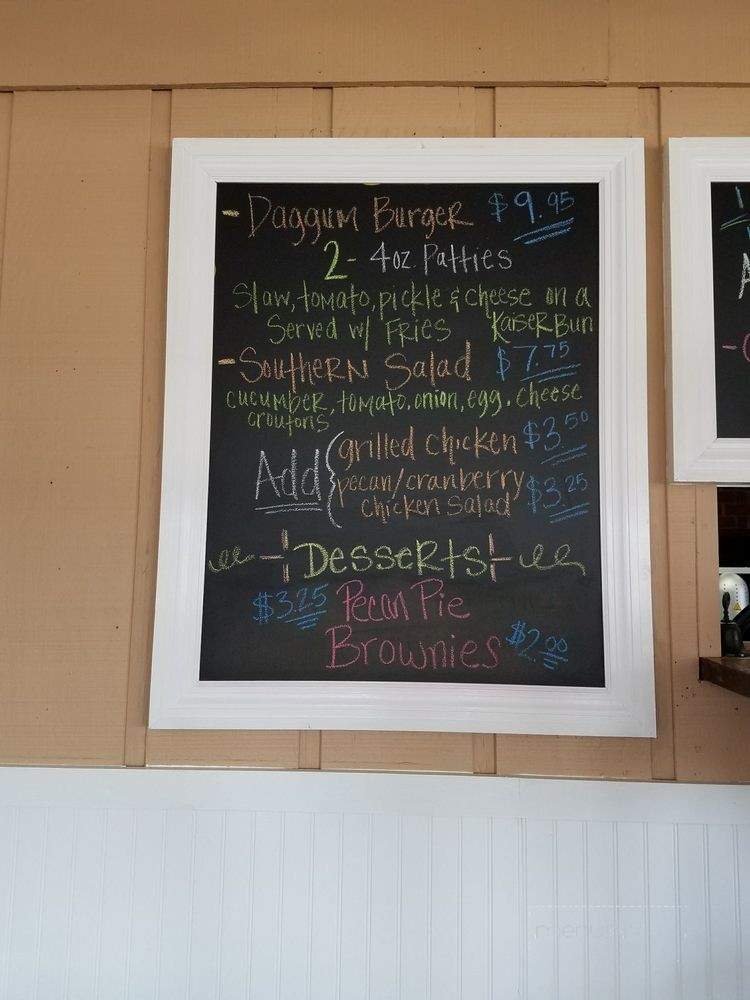 - Daggum Burger $9.95
2- 4oz. Patties
Slaw, tomato, pickle & cheese on a
Served w/ Fries KaiseR Bun
- SoutheRN Salad $7.75
cucumber, tomato, onion, egg, cheese
croutons
Add { grilled chicken $3.50
pecan/cranberry
chicken Salad $3.25
DesseRts
$3.25 Pecan Pie
Brownies $2.00
menu